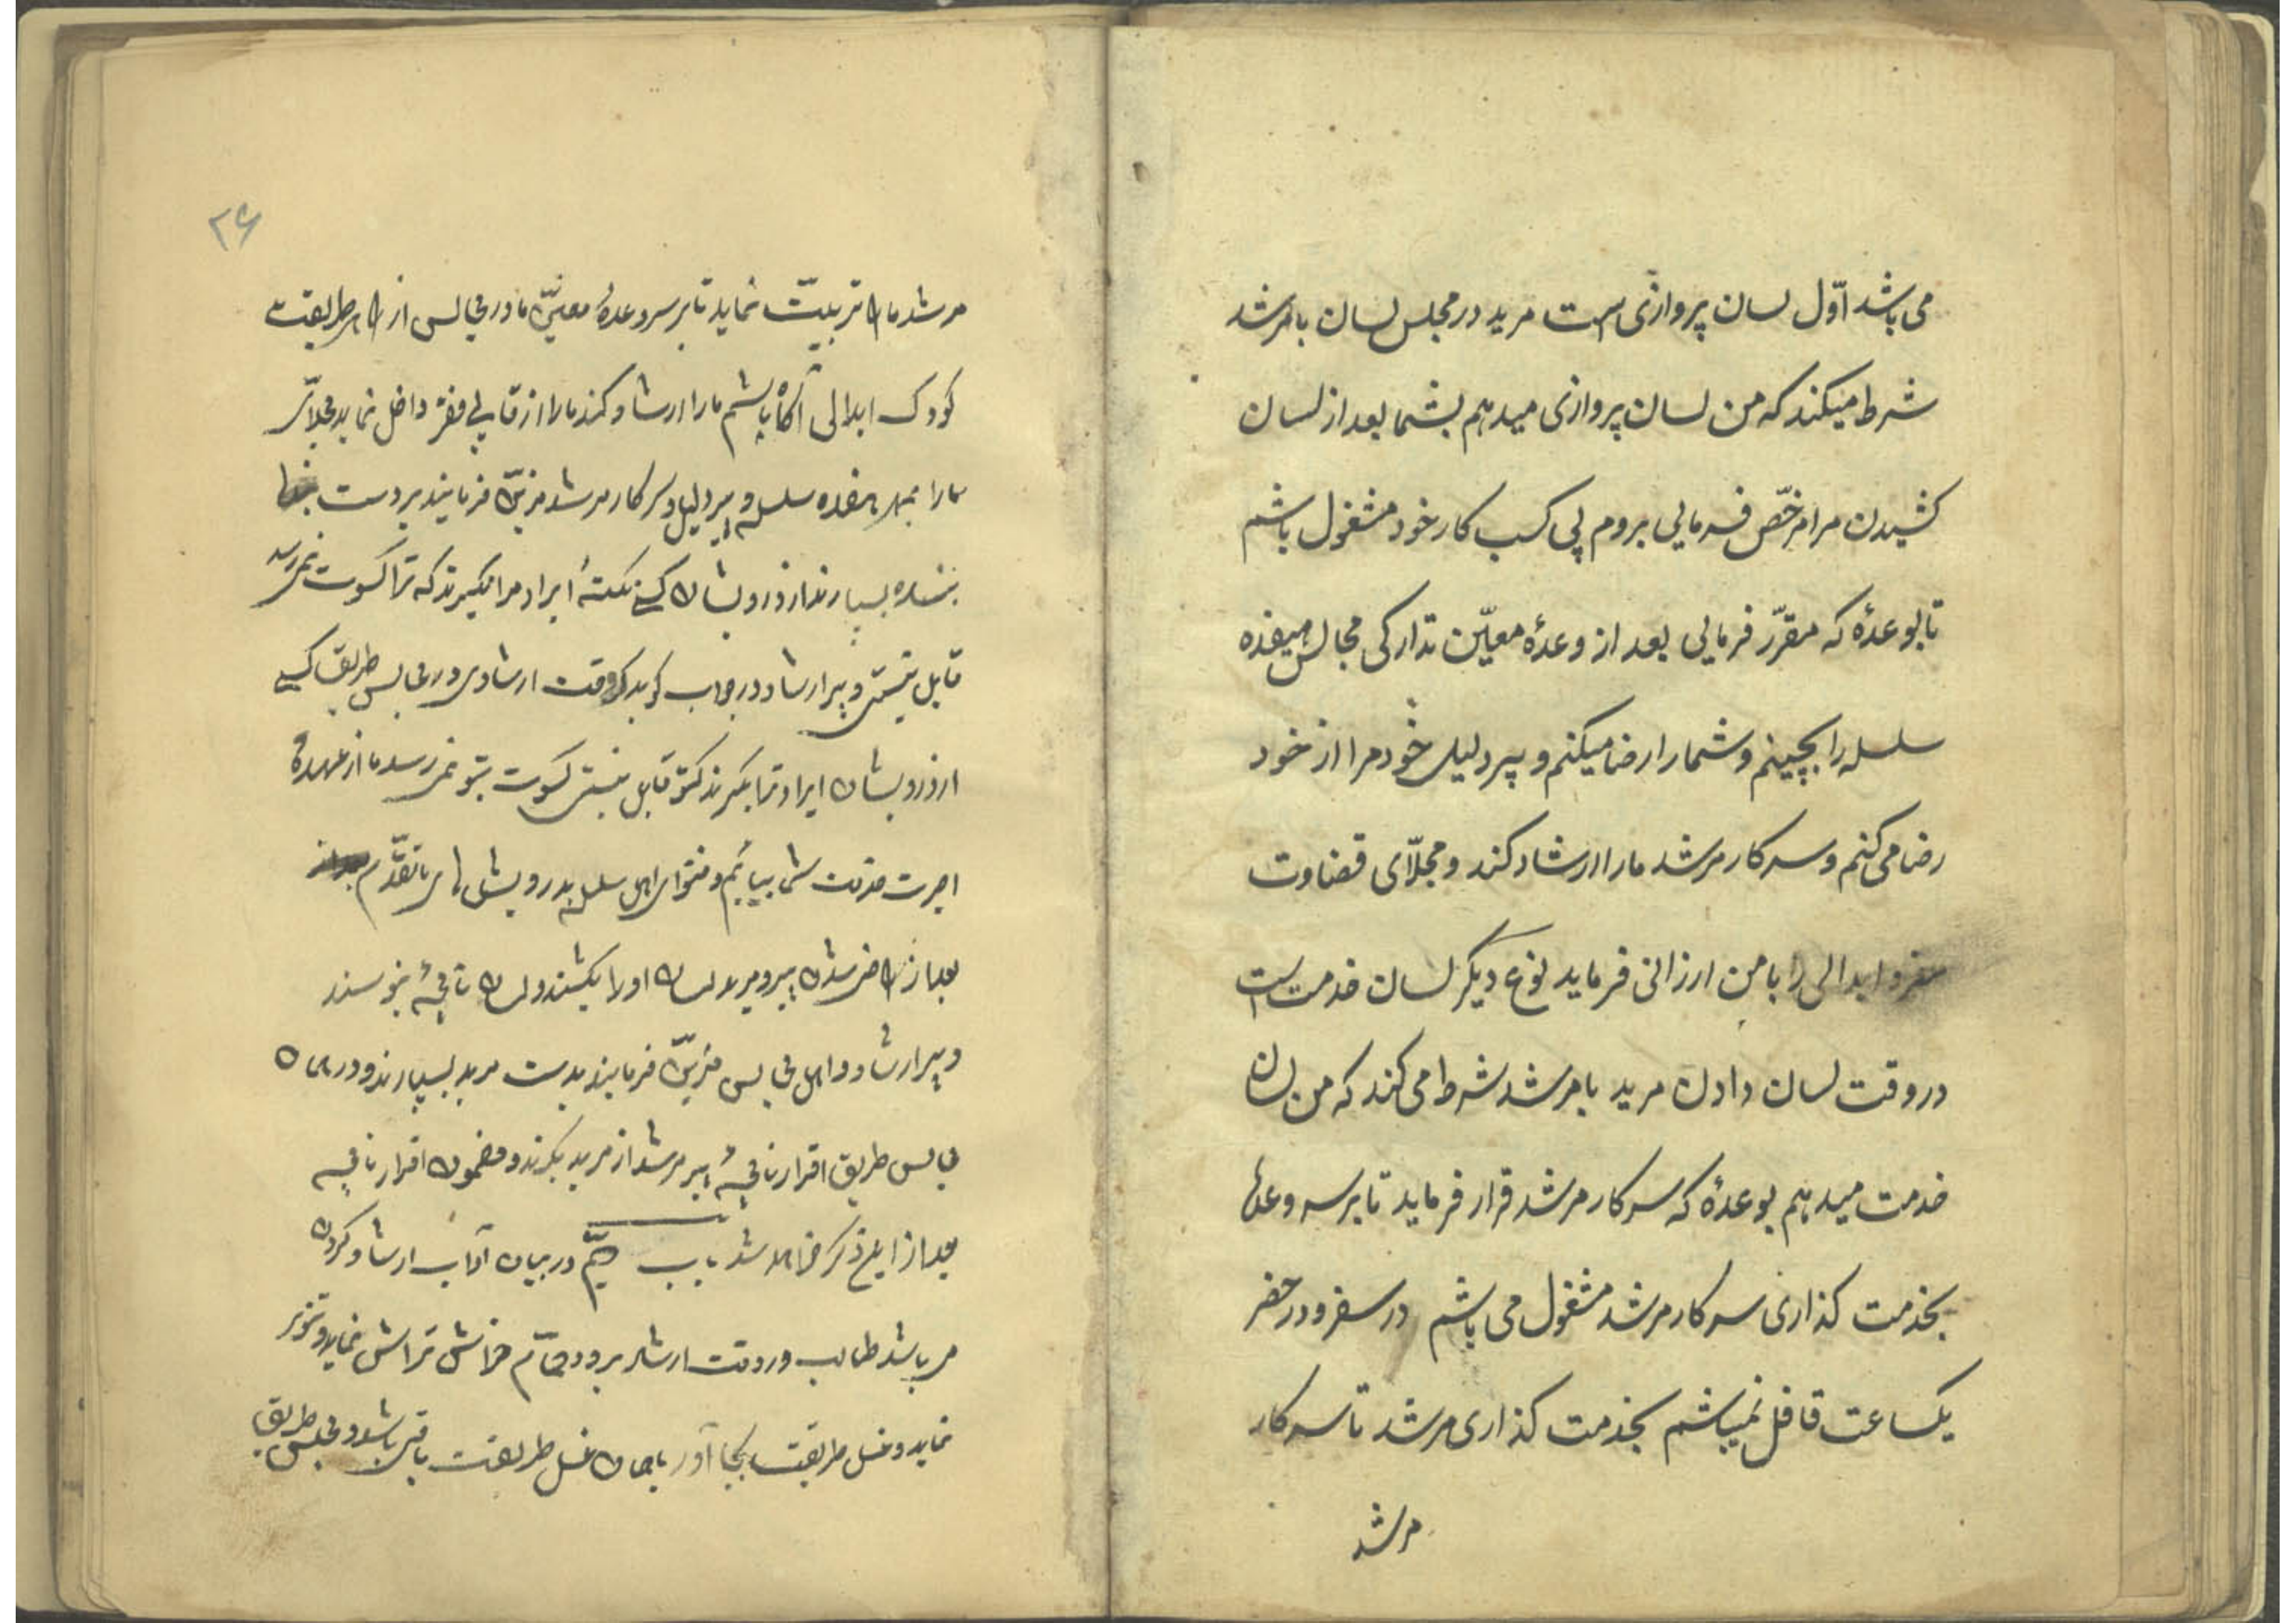 می باشد اوّل لسان پروازی است مرید در مجلس لسان با مرشد
شرط میکند که من لسان پروازی میدهم بشما بعد از لسان
کشیدن مرا مرخّص فرمایی بروم پی کسب کار خود مشغول باشم
تا بوعدهٔ که مقرّر فرمایی بعد از وعدهٔ معیّن تدارکی مجالس هیفده
سلسله را بچینم و شما را رضا میکنم و پیر دلیل خود مرا از خود
رضا می کنم و سرکار مرشد ما را ارشاد کند و مجلّای قضاوت
سفر و ابدالی را با من ارزانی فرماید نوع دیگر لسان خدمت است
در وقت لسان دادن مرید با مرشد شرط می کند که من لسان
خدمت میدهم بوعدهٔ که سرکار مرشد قرار فرماید تا بر سر وعدهٔ
بخدمت گذاری سرکار مرشد مشغول می باشم در سفر و در حضر
یکساعت قافل نمیباشم بخدمت گذاری مرشد تا سرکار
مرشد
۲۶
مرشد ما را تربیّت نماید تا بر سر وعدهٔ معیّن ما در مجالس از راه طریقت
کودک ابدالی آگاه باشم ما را ارشاد کند ما را از فقر داخل نماید
ما را بمهر هفده سلسله و پیر دلیل و سرکار مرشد مزیّن فرمایند بر دست
بنده بسپارند از درویشان کسی نکتهٔ ایراد مرا نگیرند که ترا کسوت نمیرسد
قابل نیستی و پیر ارشاد در جواب گوید که وقت ارشادی در مجالس طریق کسی
از درویشان ایراد ترا بگیرند که تو قابل نیستی کسوت بتو نمی رسد ما از عهدهٔ
بعد از راضی شدن پیر و مرید لسان او را بکشند و لسان نامچهٔ بنویسند
و پیر ارشاد و اهل مجالس مزیّن فرمایند بدست مرید بسپارند و در همان
مجالس طریق اقرار نامچهٔ پیر مرشد از مرید بگیرند و مضمون اقرار نامچه
بعد از این ذکر خواهد شد باب در بیان آداب ارشاد کردن
می باشد طالب در وقت ارشاد برود حمّام تراش نماید
نماید و غسل طریقت بجا آور با همان غسل طریقت باقی باشد و مجلس طریق